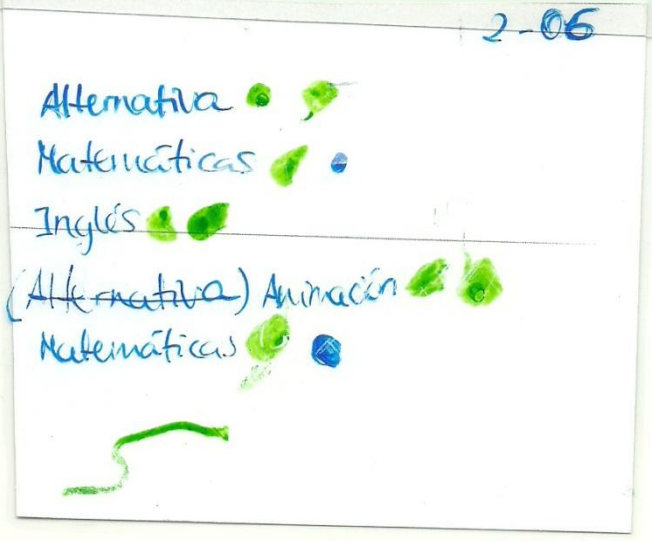 2-06
Alternativa
Matemáticas
Inglés
(Alternativa) Animación
Matemáticas